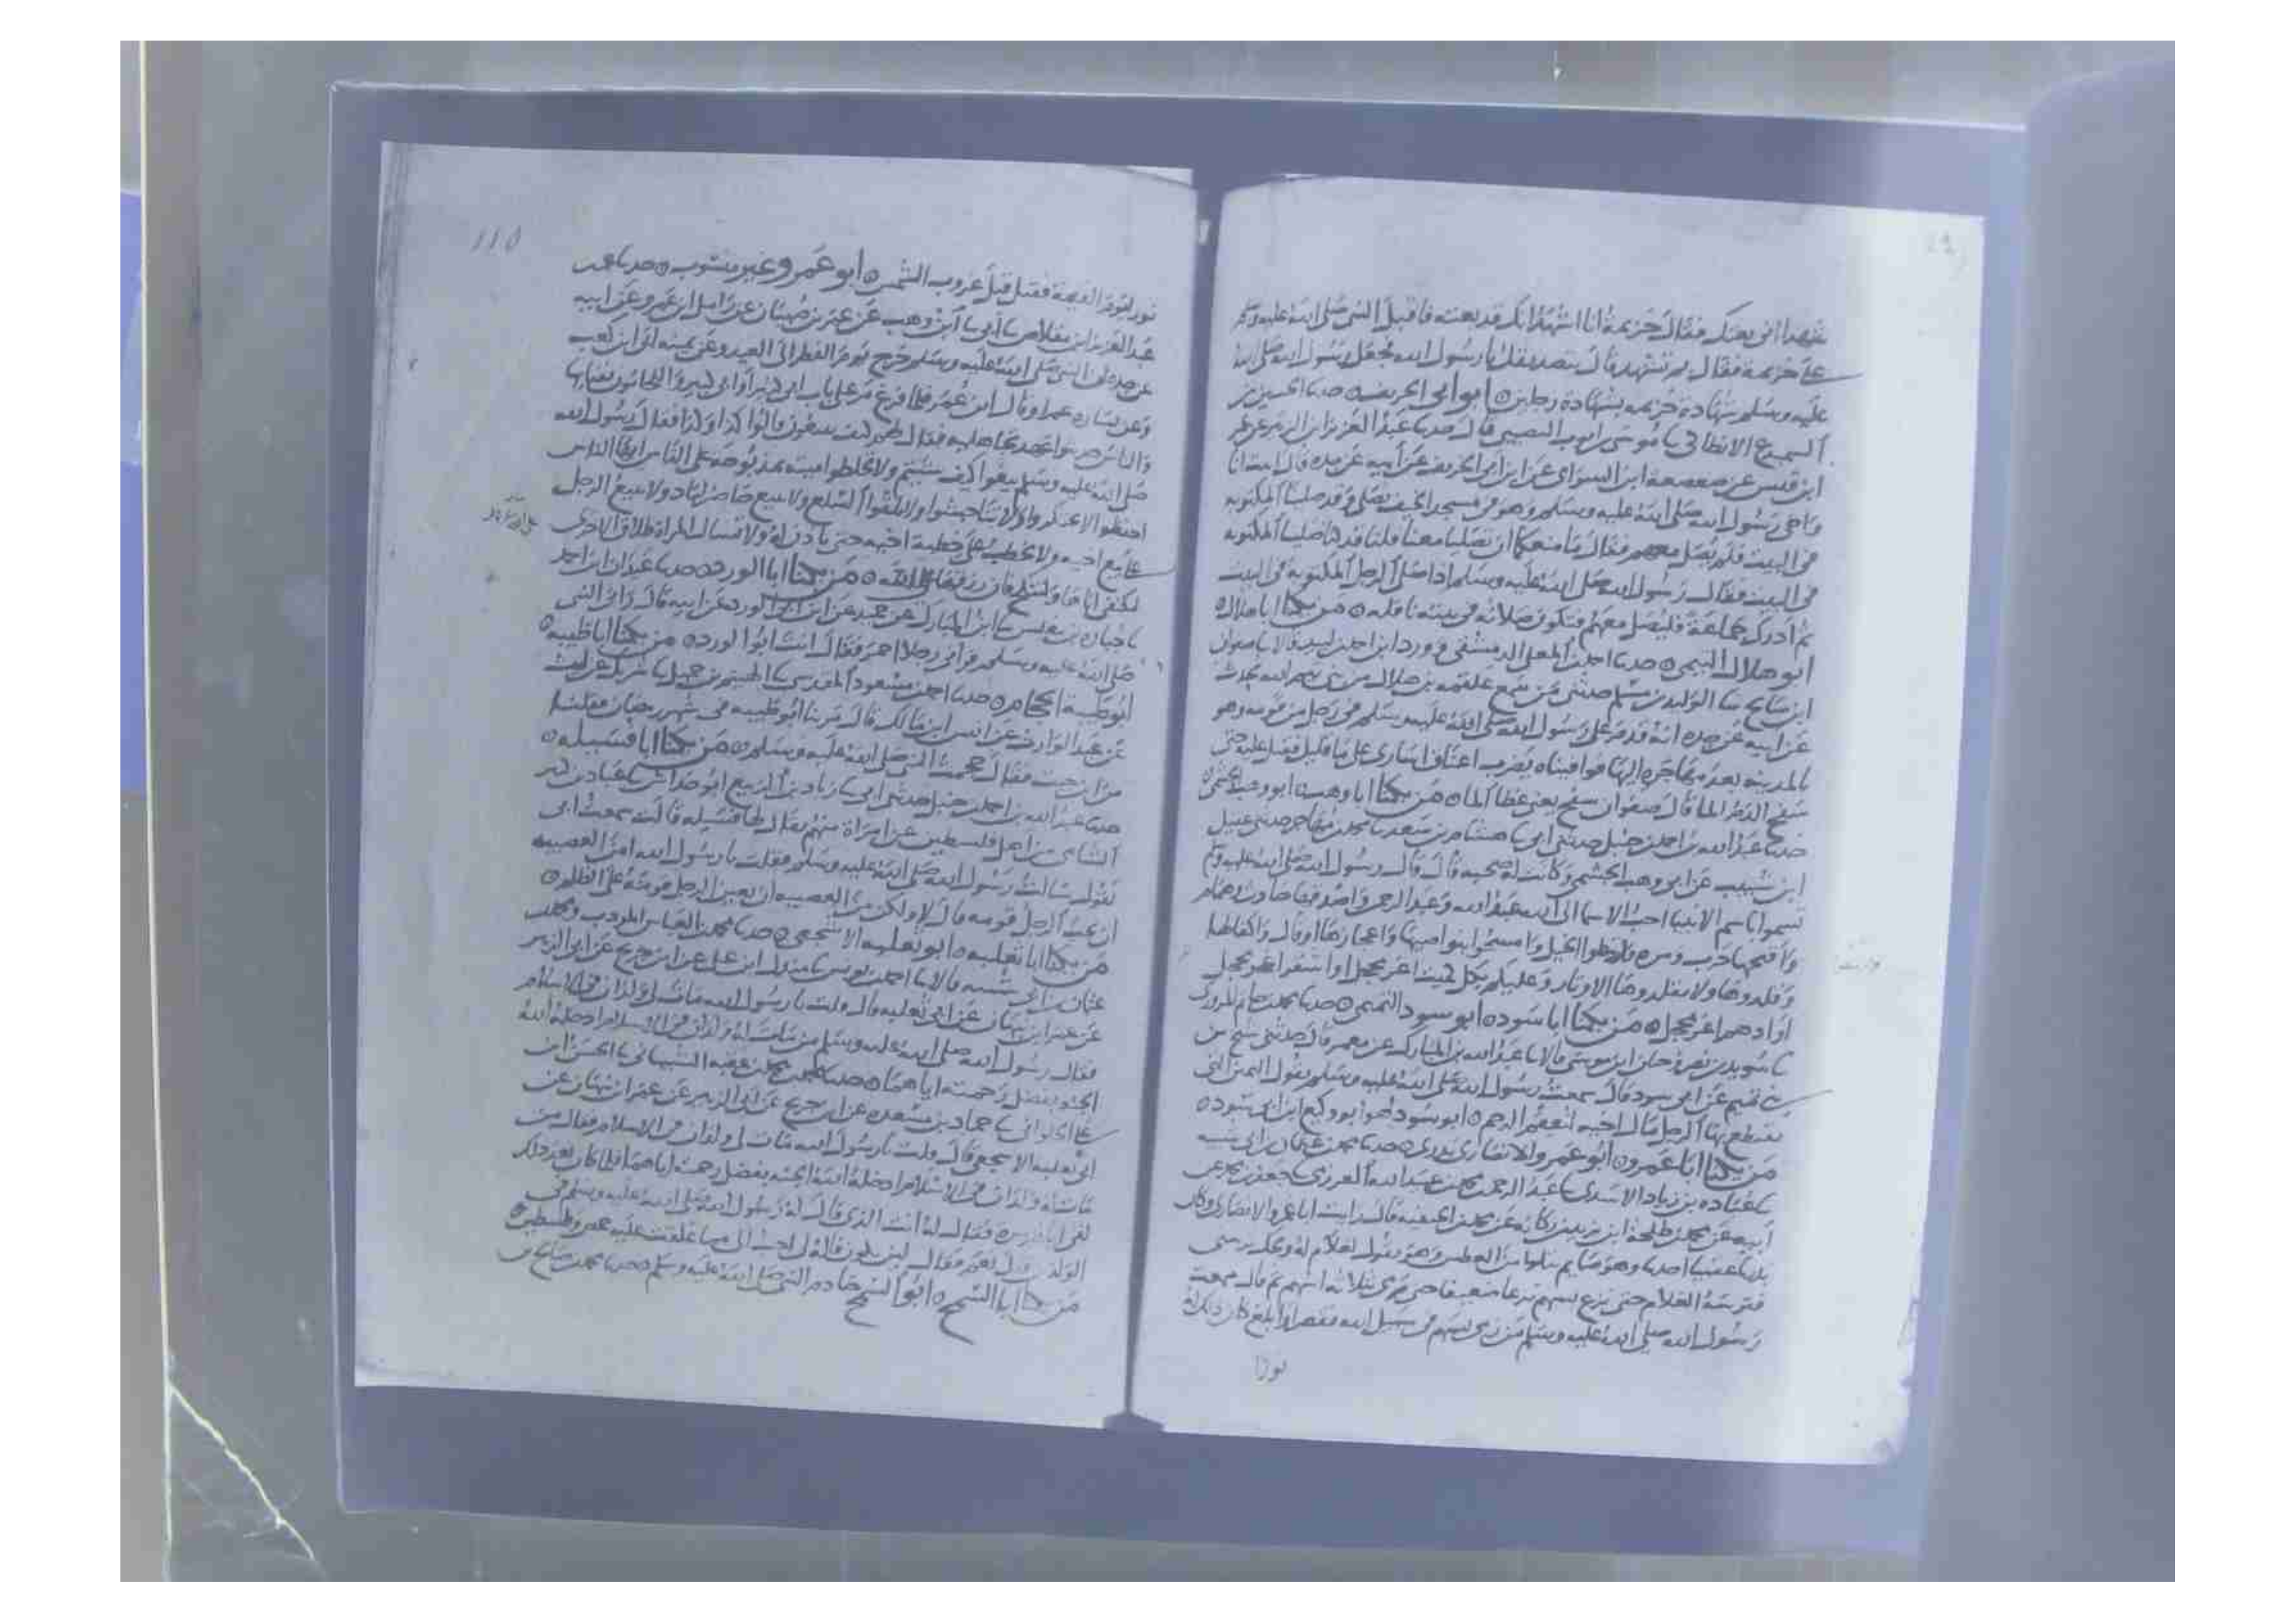 يشهد اني بعتك فقال خزيمة انا اشهد انك قد بعته فاقبل النبي صلى الله عليه وسلم
على خزيمة فقال بم تشهد قال بتصديقك يا رسول الله فجعل رسول الله صلى الله
عليه وسلم شهادة خزيمه بشهادة رجلين ه ابو ابي الخريف ه حدثنا الحسين بن
السميدع الانطاكي نا موسى بن ايوب النصيبي قال حدثنا عبد العزيز ابن
ابن قيس عن صعصعة ابن السواى عن ابن ابي الخريف عن أبيه عن جده قال اتيت انا
واخي رسول الله صلى الله عليه وسلم وهو في مسجد الخيف يصلي وقد صلينا المكتوبه
في البيت فلم نصل معهم فقال ما منعكما ان تصليا معنا قلنا قد صلينا المكتوبه
في البيت فقال رسول الله صلى الله عليه وسلم اذا صلى الرجل المكتوبة في البيت
ثم ادرك جماعة فليصل معهم وتكون صلاته في بيته نافله ه من يكنا ابا هلال ه
ابو هلال التيمي ه حدثنا احمد بن المعلى الدمشقي و ورد ابن احمد بن لبيد قالا نا صفوان
ابن صالح نا الوليد بن مسلم حدثني من سمع علقمه بن هلال من بني تيم الله يحدث
عن ابيه عن جده انه قدم على رسول الله صلى الله عليه وسلم في رجل من قومه وهو
بالمدينه بعد مهاجره اليها فوافيناه يضرب اعناق اسارى على ما قليل فقتل عليه حتى
سفح الدم الما قال صفوان سفح يعني غطا الما ه من يكنا ابا وهب ه ابو وهب الجشمي ه
حدثنا عبد الله بن احمد بن حنبل حدثني ابي نا هشام بن سعيد نا محمد بن مهاجر حدثني عقيل
ابن شبيب عن ابي وهب الجشمي وكانت له صحبه قال قال رسول الله صلى الله عليه وسلم
تسموا باسم الانبيا احب الاسما الى الله عبد الله وعبد الرحمن واصدقها حارث وهمام
واقبحها حرب ومره وارتبطوا الخيل وامسحوا بنواصيها واعجازها او قال واكفالها
وقلدوها ولا تقلدوها الاوتار وعليكم بكل كميت اغر محجل او اشقر اغر محجل
او ادهم اغر محجل ه من يكنا ابا سود ه ابو سود التميمي ه حدثنا محمد بن حاتم المروزي
نا سويد بن نصر و حبان ابن موسى قالا نا عبد الله بن المبارك عن معمر قال حدثني شيخ من
بني تميم عن ابي سود قال سمعت رسول الله صلى الله عليه وسلم يقول اليمين التي
يقتطع بها الرجل مال اخيه تعقم الرحم ه ابو سود هو ابو وكيع ابن ابي سود ه
من يكنا ابا عمرو ه ابو عمرو الانصاري بدري ه حدثنا محمد بن عثمان بن ابي شيبه
نا عباده بن زياد الاسدي نا عبد الرحمن بن محمد بن عبيد الله العرزمي نا جعفر بن محمد عن
أبيه عن محمد بن طلحة ابن يزيد بن ركانه عن محمد بن الحنفيه قال رايت ابا عمرو الانصاري وكان
بدريا عقبيا احديا وهو صايم يتلوا من العطش وهو يقول لغلام له ويحك ترسني
فترسه الغلام حتى نزع بسهم نزعا ضعيفا حتى رمى بثلاثه اسهم ثم قال سمعت
رسول الله صلى الله عليه وسلم من رمى بسهم في سبيل الله فقصر او بلغ كان ذلك له
نورا
110
نور ليوم القيمة فقتل قبل غروب الشمس ه ابو عمرو غير منسوب ه حدثنا
عبد العزيز ابن مقلاص نا أبي نا ابن وهب عن عمر بن صهبان عن زامل ابن عمرو عن ابيه
عن جده ان النبي صلى الله عليه وسلم خرج يوم الفطر الى العيد وعن يمينه ابي ابن كعب
وعن يساره عمر او قال ابن عمر فلما فرغ مر على باب ابي كبير او ابي كبيره اللحامون بفنايها
صلى الله عليه وسلم بيعوا كيف شيتم ولا تخلطوا ميتة بمذبوحة على الناس ايها الناس
احفظوا لا تحتكروا ولا تناجشوا ولا تلقوا السلع ولا يبيع حاضر لباد ولا يبيع الرجل
على بيع اخيه ولا يخطب على خطبة اخيه حتى ياذن له ولا تسال المراة طلاق الاخرى
لتكتفي اناها ولتنكح فان رزقها على الله ه من يكنا ابا الورد ه حدثنا عبدان ابن احمد
صلى الله عليه وسلم فراني رجلا احمر فقال انت ابو الورد ه من يكنا ابا طيبه ه
ابو طيبة الحجام ه حدثنا احمد بن مسعود المقدسي نا الهيثم بن جميل نا شريك عن ليث
عن عبد الوارث عن انس ابن مالك قال مر بنا ابو طيبه في شهر رمضان فقلنا
من اين جيت فقال حجمت النبي صلى الله عليه وسلم ه من يكنا ابا فسيله ه
حدثنا عبد الله بن احمد بن حنبل حدثني ابي نا زياد بن الربيع ابو خداش نا عباد بن كثير
الشامي من اهل فلسطين عن امراة منهم يقال لها فسيله قالت سمعت ابي
يقول سالت رسول الله صلى الله عليه وسلم فقلت يا رسول الله امن العصبيه
ان يحب الرجل قومه قال لا ولكن من العصبيه ان يعين الرجل قومه على الظلم ه
من يكنا ابا ثعلبه ه ابو ثعلبه الاشجعي ه حدثنا محمد بن العباس المودب ومحمد بن
عثمان بن ابي شيبه قالا نا احمد بن يونس نا مندل ابن علي عن ابن جريج عن ابي الزبير
عن عمر ابن نبهان عن ابي ثعلبه قال قلت يا رسول الله مات لي ولدان في الاسلام
فقال رسول الله صلى الله عليه وسلم من مات له ولدان في الاسلام ادخله الله
الجنه بفضل رحمته اياهما ه حدثنا محمد بن محمد بن عقبه الشيباني نا الحسن ابن
علي الحلواني نا حماد بن مسعده عن ابن جريج عن ابي الزبير عن عمر ابن نبهان عن
ابي ثعلبه الاشجعي قال قلت يا رسول الله مات لي ولدان في الاسلام فقال من
مات له ولدان في الاسلام ادخله الله الجنه بفضل رحمته اياهما فلما كان بعد ذلك
لقي ابا هريره فقال له انت الذي قال له رسول الله صلى الله عليه وسلم في
الولدين قال نعم فقال لين يكون قاله لي احب الي مما غلقت عليه حمص وفلسطين ه
من يكنا ابا السمح ه ابو السمح خادم النبي صلى الله عليه وسلم ه حدثنا محمد بن صالح بن